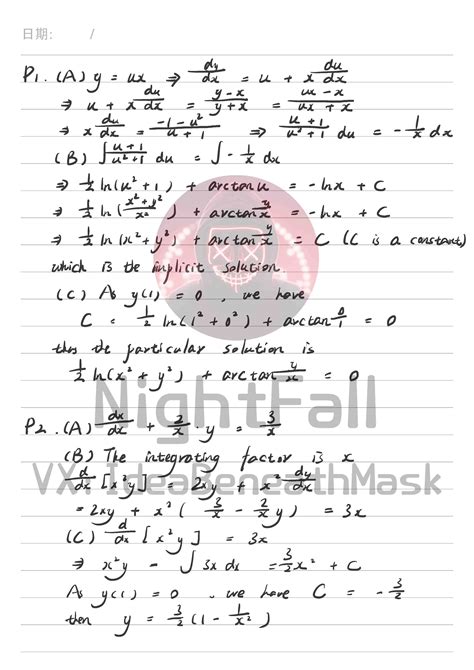 日期: /
P1. (A) y = ux ⇒ dy/dx = u + x du/dx
⇒ u + x du/dx = (y-x)/(y+x) = (ux-x)/(ux+x)
⇒ x du/dx = (-1-u²)/(u+1) ⇒ (u+1)/(u²+1) du = -1/x dx
(B) ∫ (u+1)/(u²+1) du = ∫ -1/x dx
⇒ 1/2 ln(u²+1) + arctan u = -lnx + C
⇒ 1/2 ln((x²+y²)/x²) + arctan y/x = -lnx + C
⇒ 1/2 ln(x²+y²) + arctan y/x = C (C is a constant)
which is the implicit solution.
(C) As y(1) = 0, we have
C = 1/2 ln(1²+0²) + arctan 0/1 = 0
thus the particular solution is
1/2 ln(x²+y²) + arctan y/x = 0
NightFall
P2. (A) dx/dx + 2/x · y = 3/x
(B) The integrating factor is x
VX: IdeaBeneathMask
d/dx [x²y] = 2xy + x² dy/dx
= 2xy + x² (3/x - 2/x y) = 3x
(C) d/dx [x²y] = 3x
⇒ x²y - ∫ 3x dx = 3/2 x² + C
As y(1) = 0, we have C = -3/2
then y = 3/2 (1 - 1/x²)